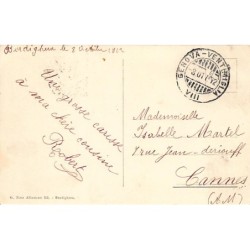 Bordighera le 8 Octobre 1912
GENOVA - VENTIMIGLIA
VIII
Une grosse caresse
à ma chère cousine
Robert
Mademoiselle
Isabelle Martel
rue Jean-
Cannes
(A.M)